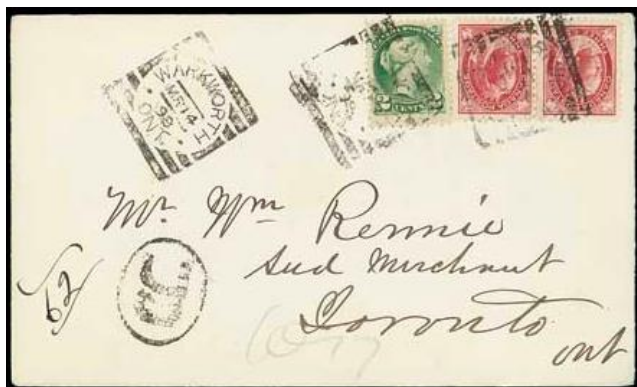 WARKWORTH
MR 14
98
ONT
2 CENTS
Mr. Wm Rennie
Seed Merchant
Toronto
Ont
R
62